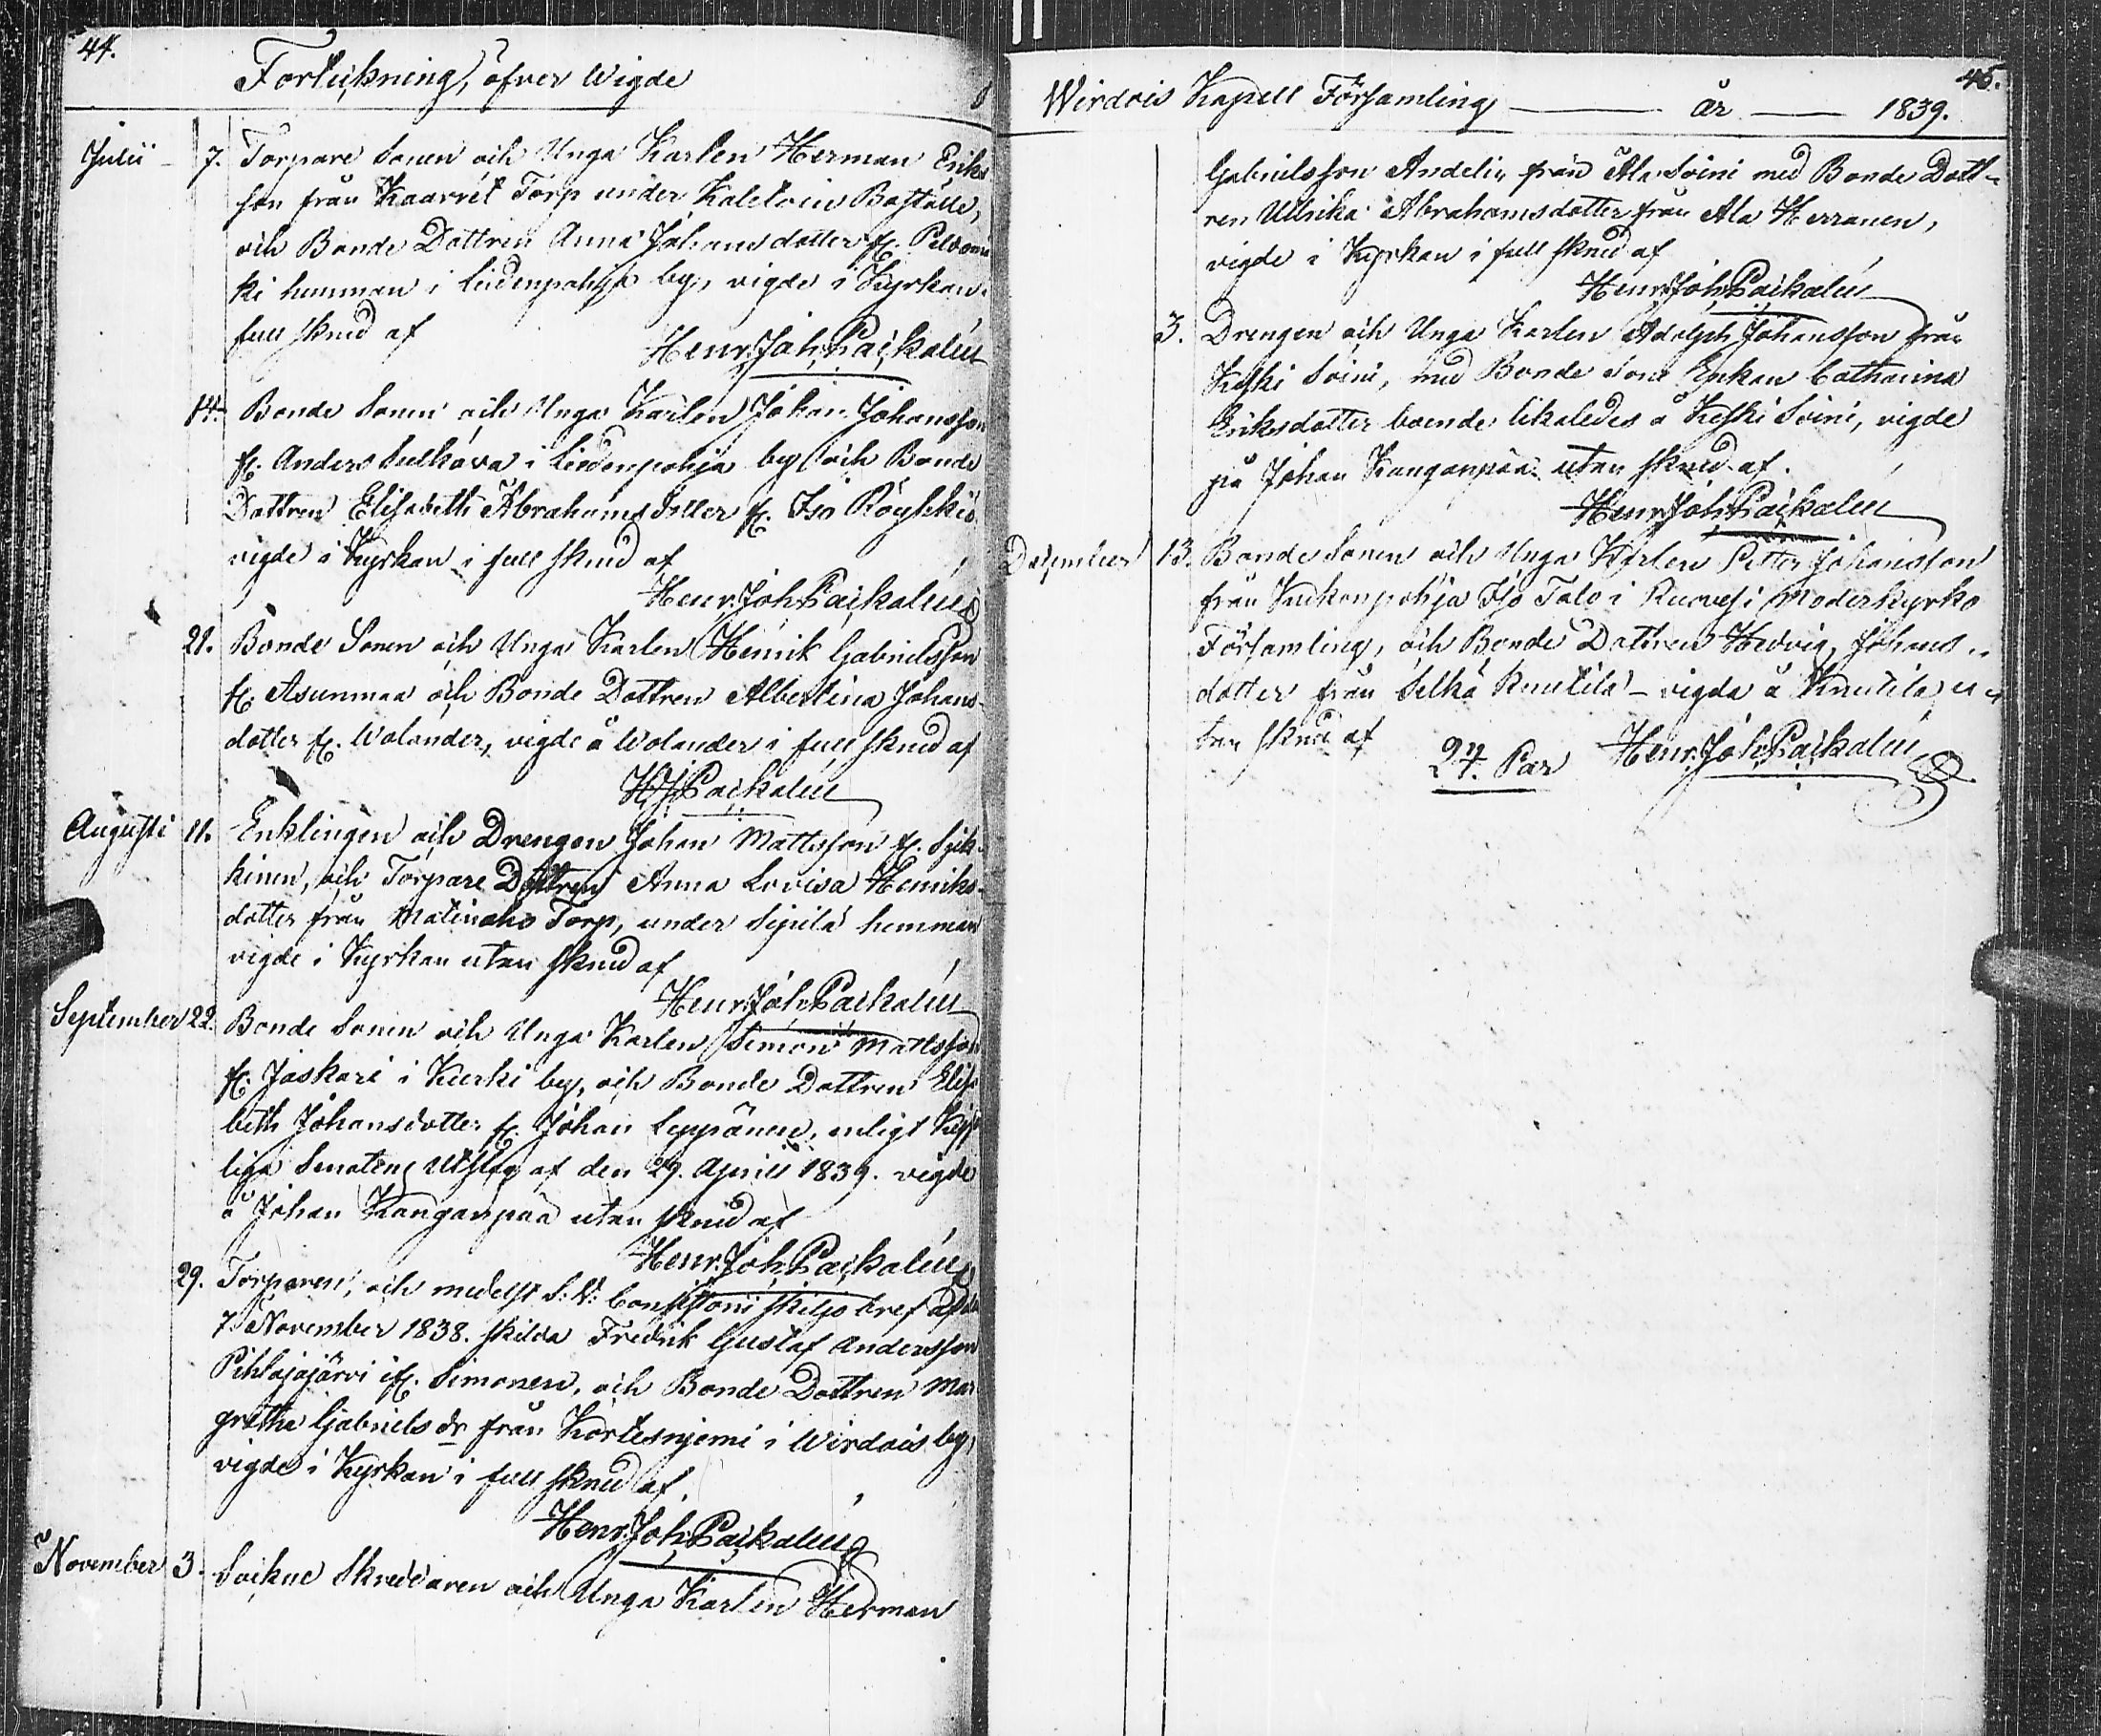 44.
Förteckning, öfver Wigde
Julii 7. Torpare Sonen och Unga Karlen Herman Eriks
son från Kaarret Torp under Kaletoin Boställe,
och Bonde Dottren Anna Johansdotter fr.
ki hemman i Liedenpohja by, vigde i Kyrkan i
full skrud af
Henr. Joh. Packalén
14. Bonde Sonen och Unga Karlen Johan Johansson
fr. Anders Sulkava i Liedenpohja by och Bonde
Dottren Elisabeth Abrahamsdotter fr. Iso Röyhkiö
vigde i Kyrkan i full skrud af
Henr. Joh. Packalén
21. Bonde Sonen och Unga Karlen Henrik Gabrielsson
fr. Asunmaa och Bonde Dottren Albertina Johans-
dotter fr. Wolander, vigde å Wolander i full skrud af
H. J. Packalén
Augusti 11. Enklingen och Drengen Johan Mattsson fr.
kinen, och Torpare Dottren Anna Lovisa Henriks-
dotter från Matinaho Torp, under Sipilä hemman
vigde i Kyrkan utan skrud af
Henr. Joh. Packalén
September 22. Bonde Sonen och Unga Karlen Simon Mattsson
fr. Jäskari i Kurki by, och Bonde Dottren Elisa
beth Johansdotter fr. Johan Leppänen, enligt Kejser
liga Senatens Utslag af den 29. Aprill 1839. vigde
å Johan Kanganpää utan skrud af
Henr. Joh. Packalén
29. Torparen, och medelst S. V. Consistorii skiljo bref af den
7 November 1838. skilda Fredrik Gustaf Andersson
Pihlajajärvi fr. Simonen, och Bonde Dottren Mar
gretha Gabriels dr från Kortesniemi i Wirdois by,
vigde i Kyrkan i full skrud af.
Henr. Joh. Packalén
November 3. Sockne Skreddaren och Unga Karlen Herman
45.
Wirdois Kapell Församling — år — 1839.
Gabrielsson Andelin från Ala Soini med Bonde Dott-
ren Ullrika Abrahamsdotter från Ala Herranen,
vigde i Kyrkan i full skrud af
Henr. Joh. Packalén
3. Drengen och Unga Karlen Adolph Johansson från
Keski Soini, med Bonde Sone Enkan Catharina
Eriksdotter boende likaledes å Keski Soini, vigde
på Johan Kanganpää utan skrud af.
Henr. Joh. Packalén
December 13. Bonde Sonen och Unga Karlen Petter Johansson
från Kuckonpohja Iso Talo i Ruovesi Moderkyrko
Församling, och Bonde Dottren Hedvig Johans-
dotter från Selkä Knutila - vigda å Knutila u-
tan skrud af
24. Par
Henr. Joh. Packalén